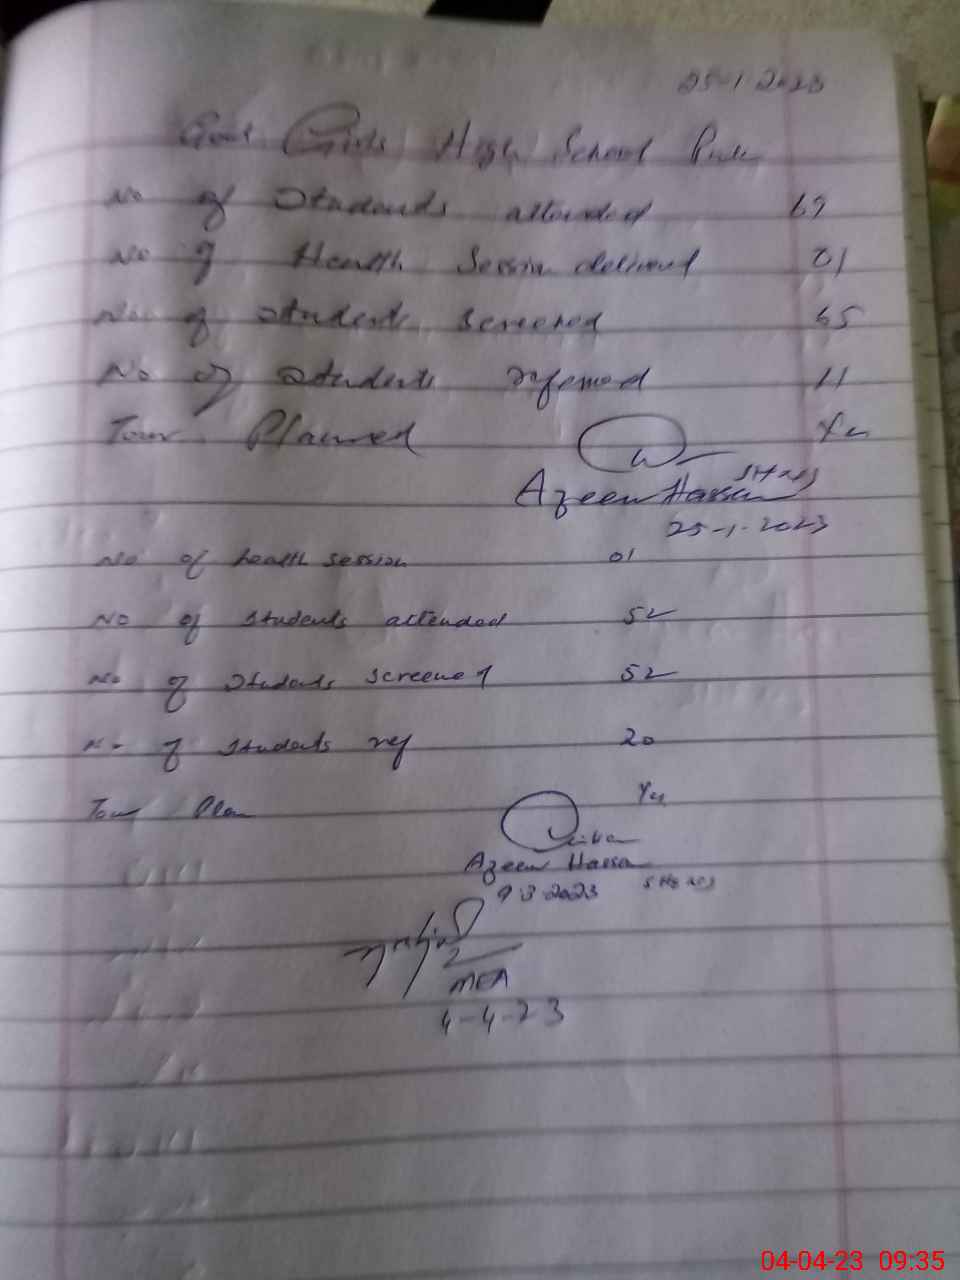 25-1-2023
Govt Girls High School
No of Students attended 69
No of Health Session delivered 01
No of Students screened 65
No of Students referred 11
Tour Planned Yes
SH&NS
Azeem Hassan
25-1-2023
No of health session 01
No of students attended 52
No of Students screened 52
No of Students ref 20
Tour Plan Yes
Azeem Hassan
9-3-2023 SH&NS
MEA
4-4-23
04-04-23 09:35